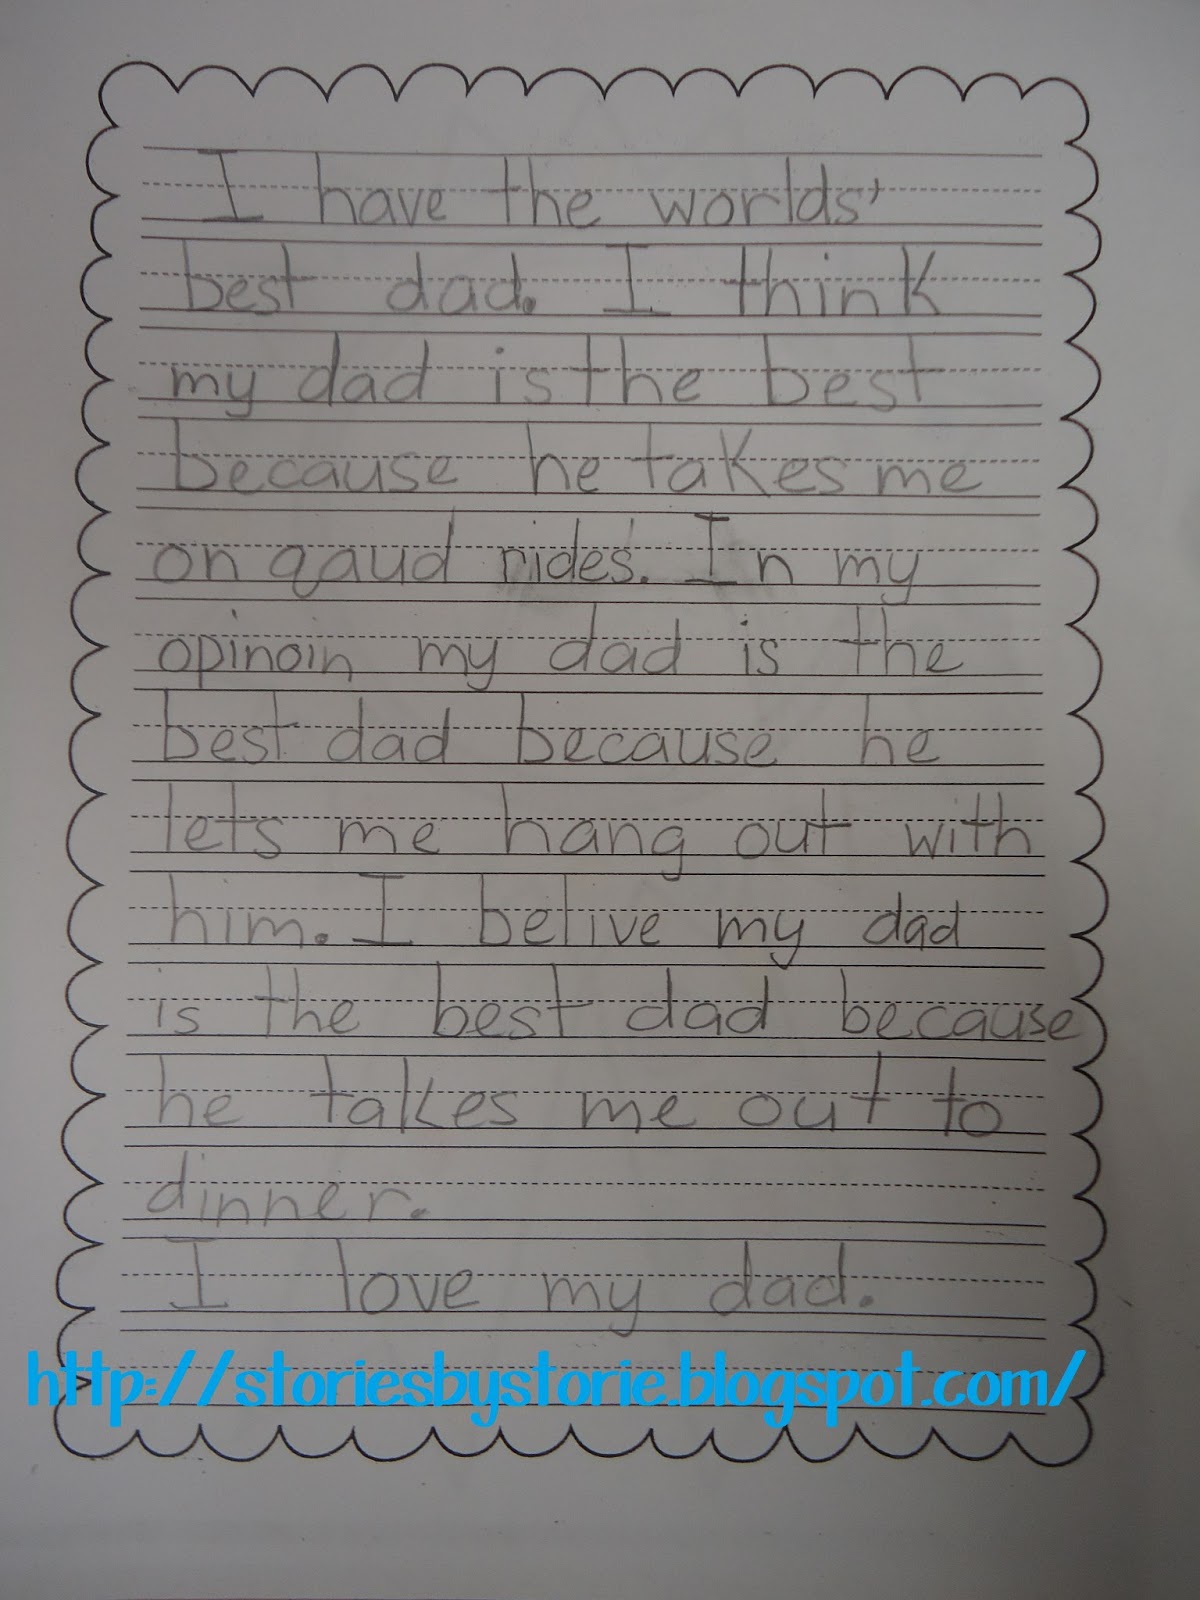 I have the worlds'
best dad. I think
my dad is the best
because he takes me
on qaud rides. In my
opinoin my dad is the
best dad because he
lets me hang out with
him. I belive my dad
is the best dad because
he takes me out to
dinner.
I love my dad.
http://storiesbystorie.blogspot.com/